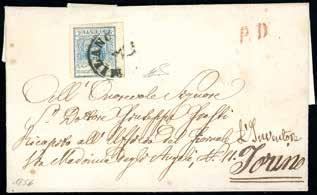 MILANO
P.D
All'Onorevole Signore
Dottore Giuseppe
Recapito all'Uffizio del Giornale L'Inventore
Via Madonna degli Angeli, N. 11. Torino
1856